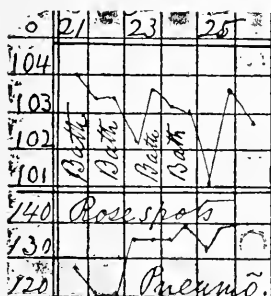 21 23 25
104
103
102
101
Bath Bath Bath Bath
140 Rose spots
130
120 Pneumõ.